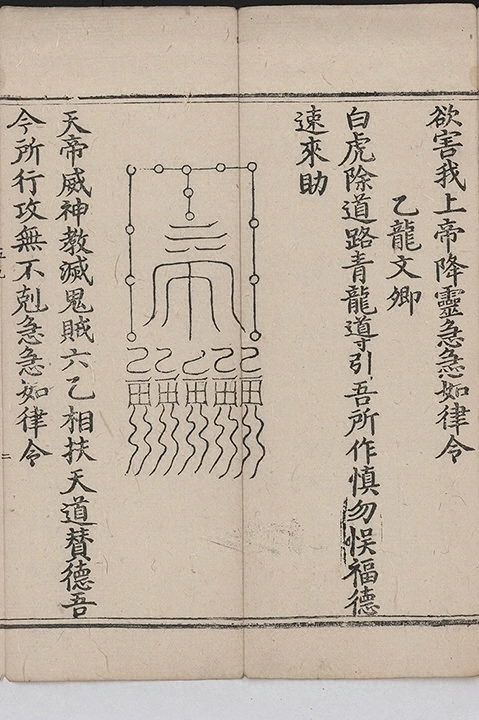 欲害我上帝降靈急急如律令
乙龍文卿
白虎除道路青龍導引吾所作慎勿悞福德
速來助
天帝威神教滅鬼賊六乙相扶天道賛德吾
今所行攻無不剋急急如律令